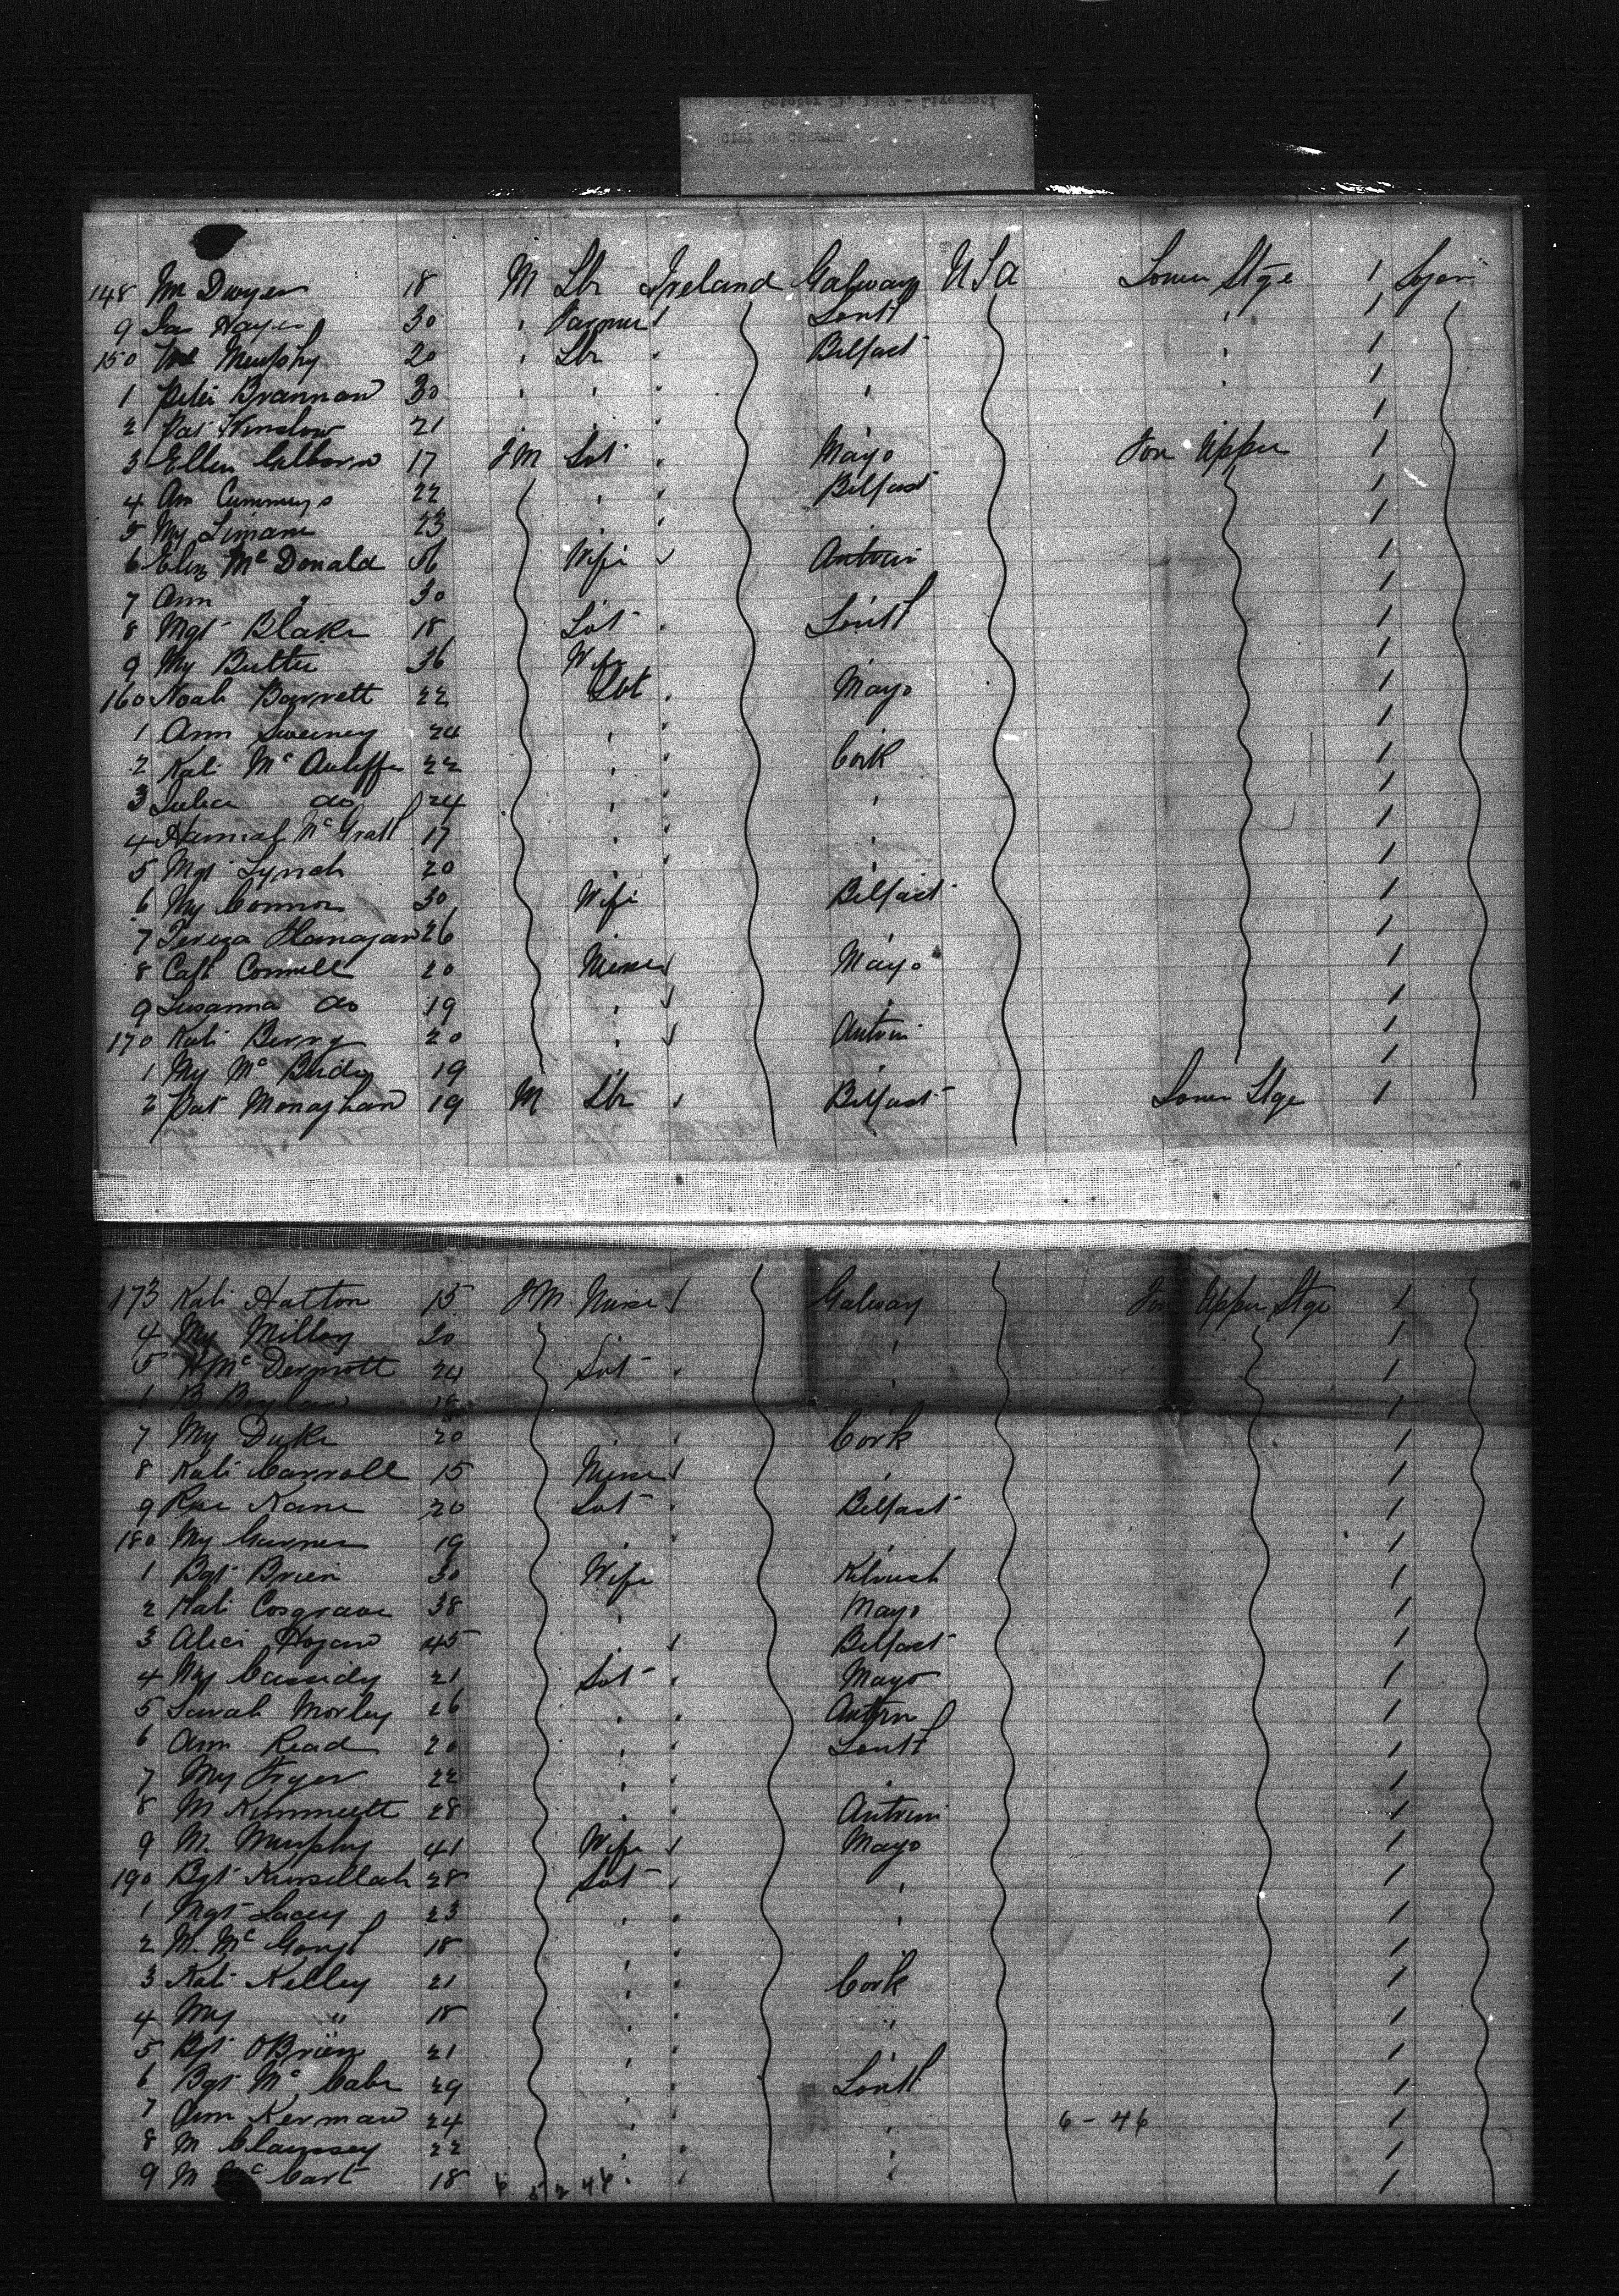 148 Wm Dwyer 18 M Lbr Ireland Galway USA Lower Stge 1
9 Jas Hayes 30 " Farmer Louth " 1
150 Murphy 20 " Lbr " Belfast " 1
1 Peter Brannan 30 " " " " " 1
2 Pat Kinslow 21 1
3 Ellen 17 FM Sot " Mayo For Upper 1
4 An Cummings 22 " " Belfast 1
5 My 1
6 Eliz McDonald 56 Wife Antrim 1
7 Ann " 30 1
8 Mgt Blake 18 Sot " Louth 1
9 My 36 Wife 1
160 Noah Barrett 22 Sot " Mayo 1
1 Ann Sweeney 24 " " 1
2 Kate McAuliffe 22 " " Cork 1
3 Julia do 24 " " " 1
4 Hannah McGrath 17 " " " 1
5 Mgt Lynch 20 1
6 My Connor 30 Wife Belfast 1
7 Tereza Flanagan 26 1
8 Cath Connell 20 Nurse Mayo 1
9 Susanna do 19 " " 1
170 Kate Berry 20 " Antrim 1
1 My McBride 19 1
2 Pat Monaghan 19 M Lbr " Belfast Lower Stge 1
173 Kate Hatton 15 FM Nurse Galway For Upper Stge 1
4 My Milloy 20 " 1
5 McDermott 24 Sot " " 1
B Boylan 18 1
7 My Duke 20 " Cork 1
8 Kate Carroll 15 Nurse " 1
9 Rose Kane 20 Sot " Belfast 1
180 My Garner 19 " " 1
1 Bgt Brien 30 Wife Kilrush 1
2 Kate Cosgrave 38 " Mayo 1
3 Alice Hogan 45 " Belfast 1
4 My Cassidy 21 Sot " Mayo 1
5 Sarah Morley 26 " " Antrim 1
6 Ann Read 20 " " Louth 1
7 My Fryer 22 " " " 1
8 M 28 " " Antrim 1
9 M. Murphy 41 Wife Mayo 1
190 Bgt Kinsellah 28 Sot " " 1
1 Mgt Lacey 23 " " " 1
2 M. McGough 18 1
3 Kate Kelley 21 " " Cork 1
4 My " 18 " " " 1
5 Bgt OBrien 21 " " " 1
6 Bgt McCabe 29 " " Louth 1
7 Ann Kerman 24 " " " 6-46 1
8 M 22 " " " 1
9 M McCart 18 " " " 1